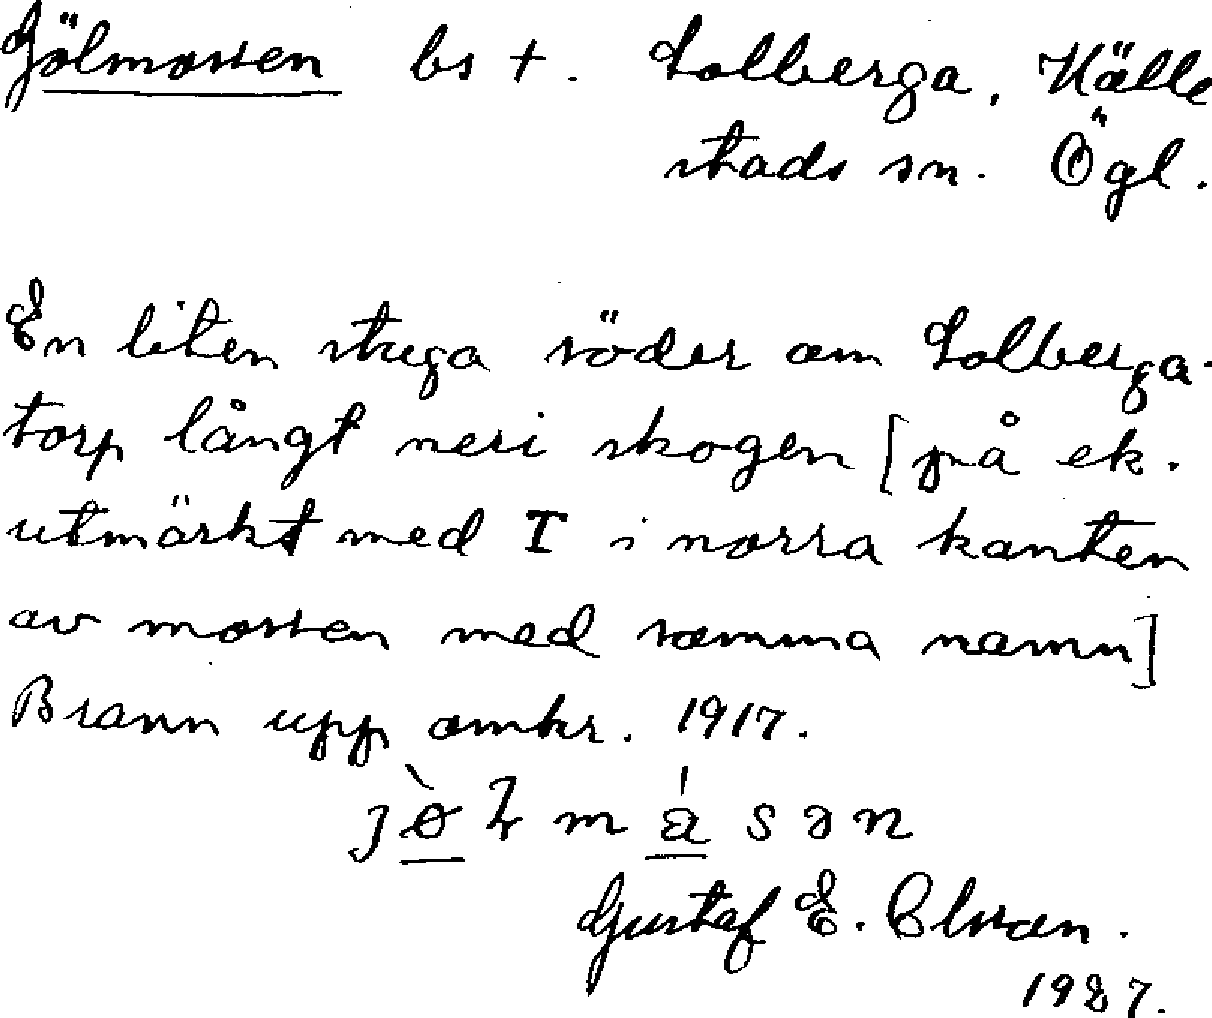 Gölmossen bs +. Solberga, Hälle
stads sn. Ögl.
En liten stuga söder om Solberga-
torp långt neri skogen [på ek.
utmärkt med T i norra kanten
av mossen med samma namn]
Brann upp omkr. 1917.
Gustaf E. Olsson.
1927.